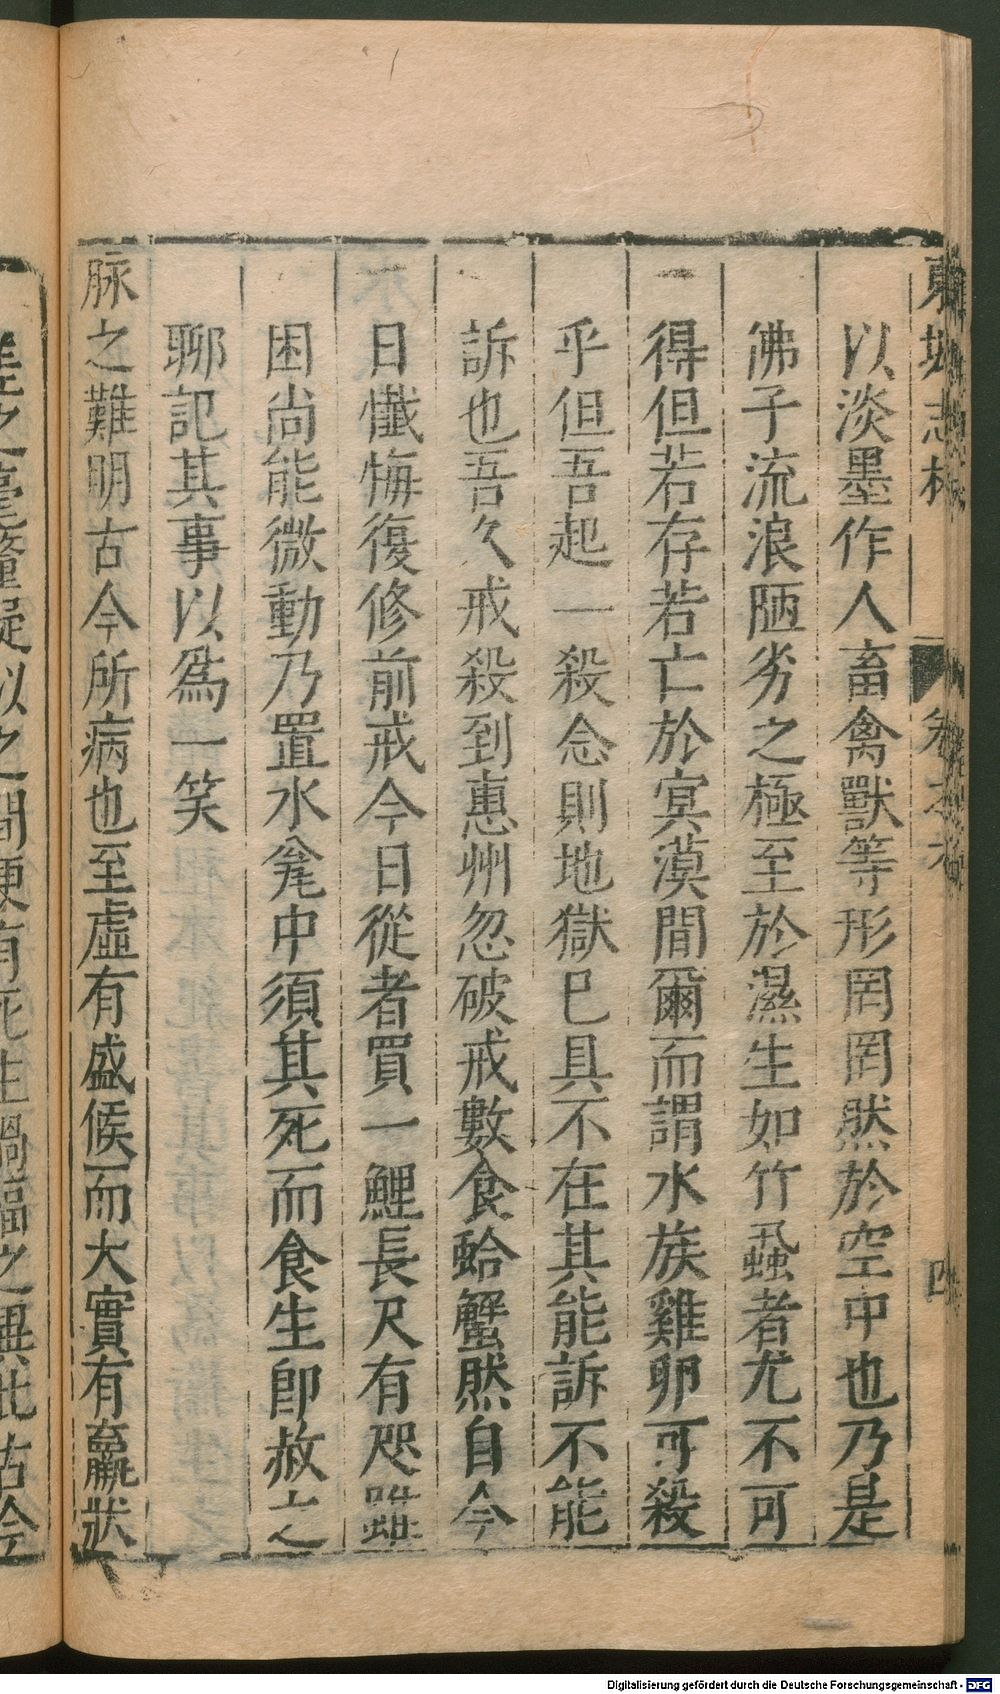 東坡志林
以淡墨作人畜禽獸等形罔罔然於空中也乃是
佛子流浪陋劣之極至於濕生如竹蝨者尤不可
得但若存若亡於冥漠間爾而謂水族雞卵可殺
乎但吾起一殺念則地獄已具不在其能訴不能
訴也吾久戒殺到惠州忽破戒數食蛤蟹然自今
日懺悔復修前戒今日從者買一鯉長尺有咫雖
困尚能微動乃置水瓮中須其死而食生即赦之
聊記其事以爲一笑
脉之難明古今所病也至虛有盛候而大實有羸狀
差之毫釐疑似之間便有死生禍福之異此古今
Digitalisierung gefördert durch die Deutsche Forschungsgemeinschaft - DFG